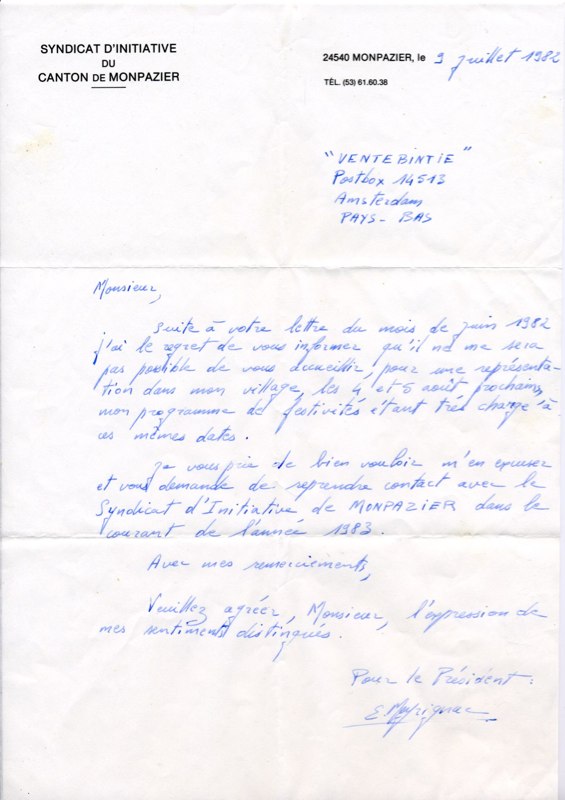 SYNDICAT D'INITIATIVE
DU
CANTON DE MONPAZIER
24540 MONPAZIER, le 9 juillet 1982
TÉL. (53) 61.60.38
"VENTEBINTIE"
Postbox 14513
Amsterdam
PAYS-BAS
Monsieur,
Suite à votre lettre du mois de juin 1982
j'ai le regret de vous informer qu'il ne me sera
pas possible de vous accueillir, pour une représenta-
tion dans mon village, les 4 et 5 août prochain,
mon programme de festivités étant très chargé à
ces mêmes dates.
Je vous prie de bien vouloir m'en excuser
et vous demande de reprendre contact avec le
Syndicat d'Initiative de MONPAZIER dans le
courant de l'année 1983.
Avec mes remerciements,
Veuillez agréer, Monsieur, l'expression de
mes sentiments distingués.
Pour le Président :